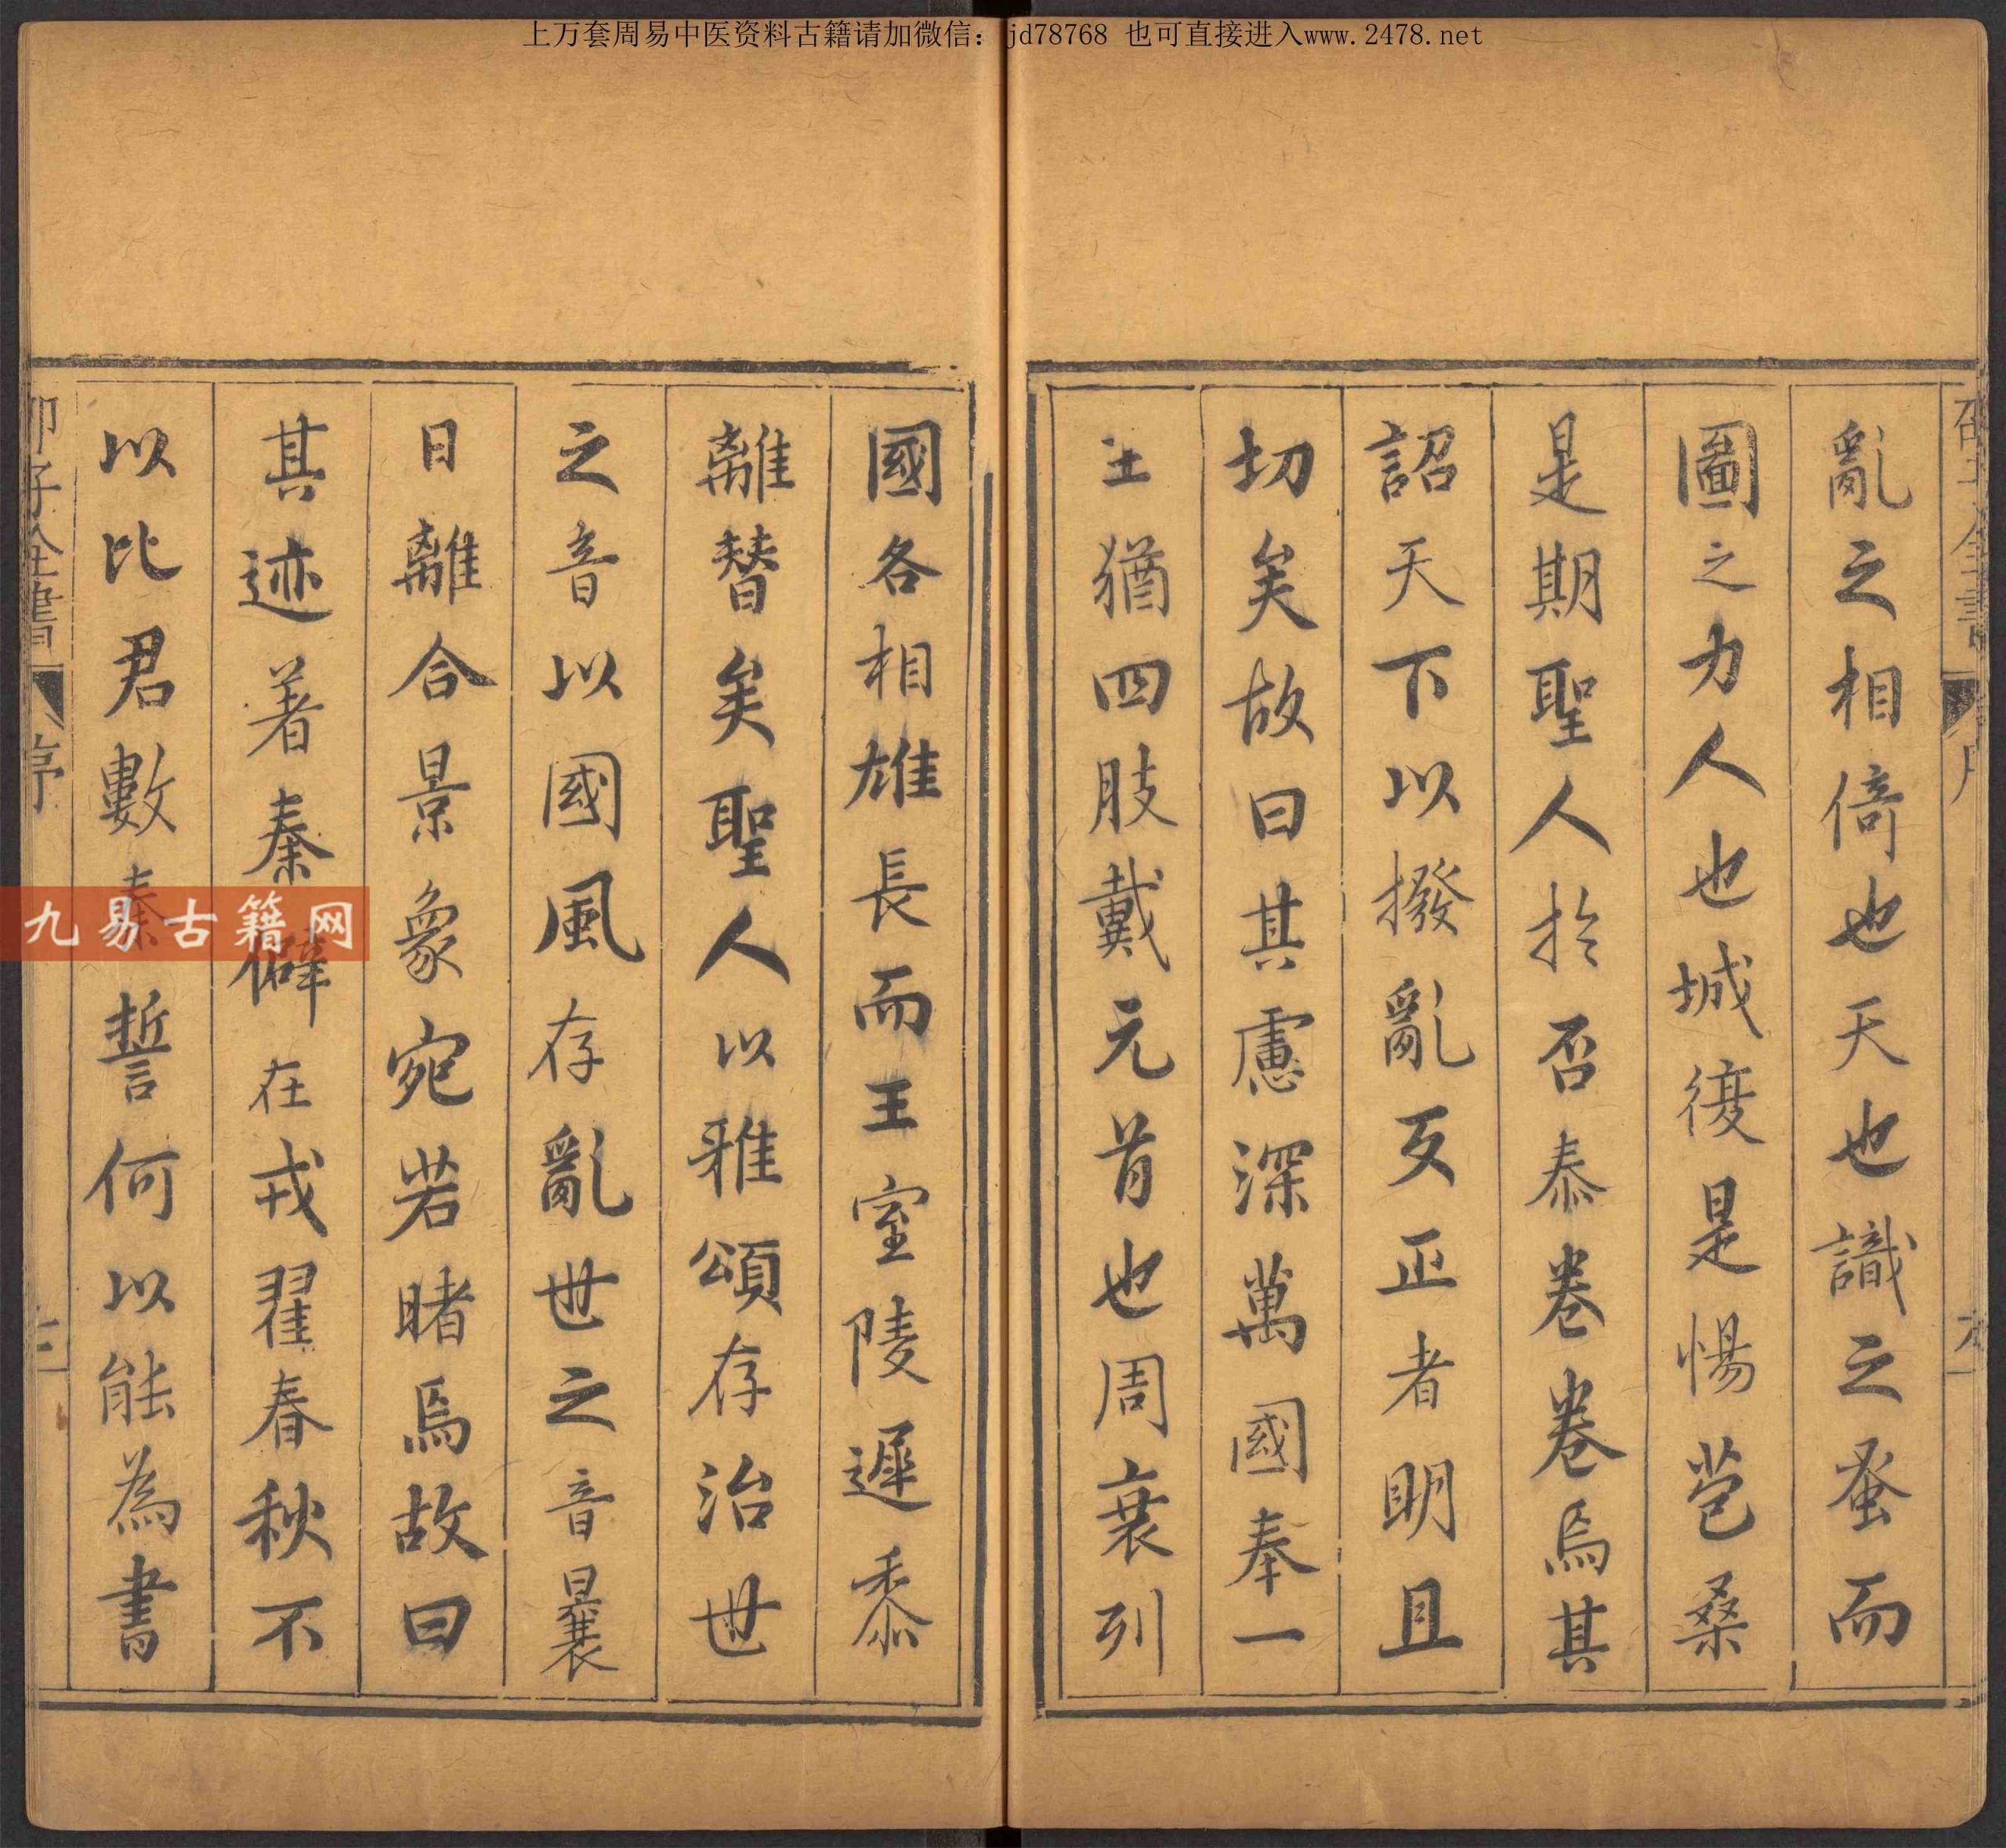 上万套周易中医资料古籍请加微信：jd78768 也可直接进入www.2478.net
亂之相倚也天也識之蚤而
圖之力人也城復是惕苞桑
是期聖人於否泰卷卷焉其
詔天下以撥亂反正者明且
切矣故曰其慮深萬國奉一
王猶四肢戴元首也周衰列
國各相雄長而王室陵遲黍
離替矣聖人以雅頌存治世
之音以國風存亂世之音曩
日離合景象宛若睹焉故曰
其迹著秦僻在戎翟春秋不
以比君數秦誓何以能為書
子全書
序
九易古籍网